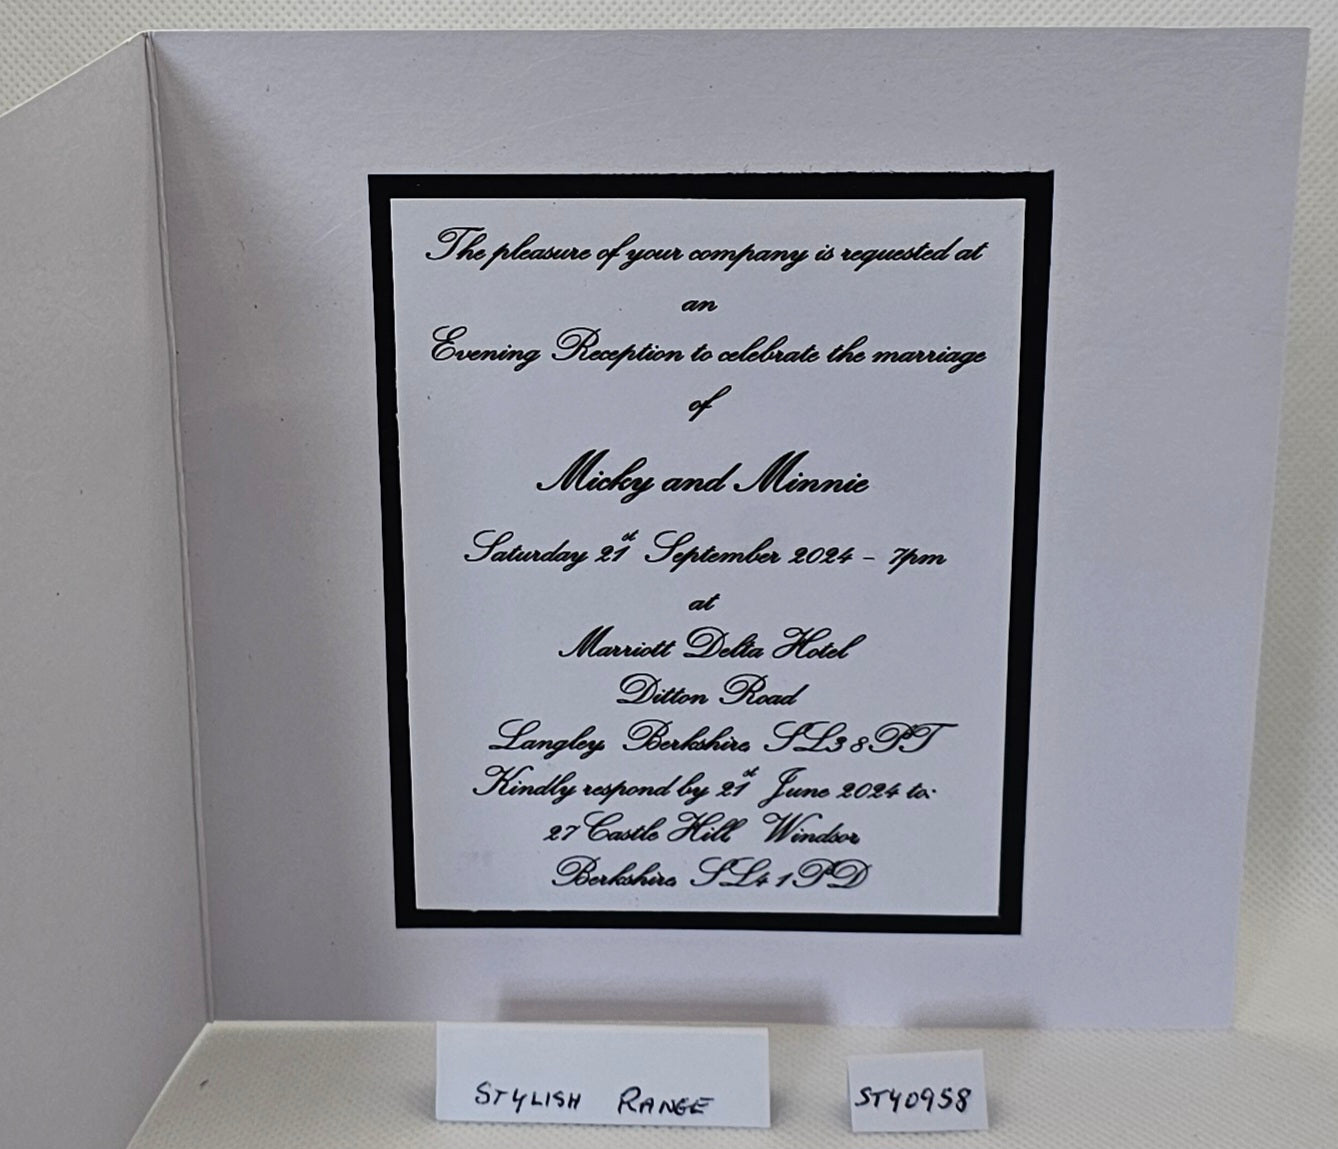 The pleasure of your company is requested at
an
Evening Reception to celebrate the marriage
of
Micky and Minnie
Saturday 21st September 2024 - 7pm
at
Marriott Delta Hotel
Ditton Road
Langley Berkshire SL3 8PT
Kindly respond by 21st June 2024 to:
27 Castle Hill Windsor
Berkshire SL4 1PD
STYLISH RANGE
STY0958